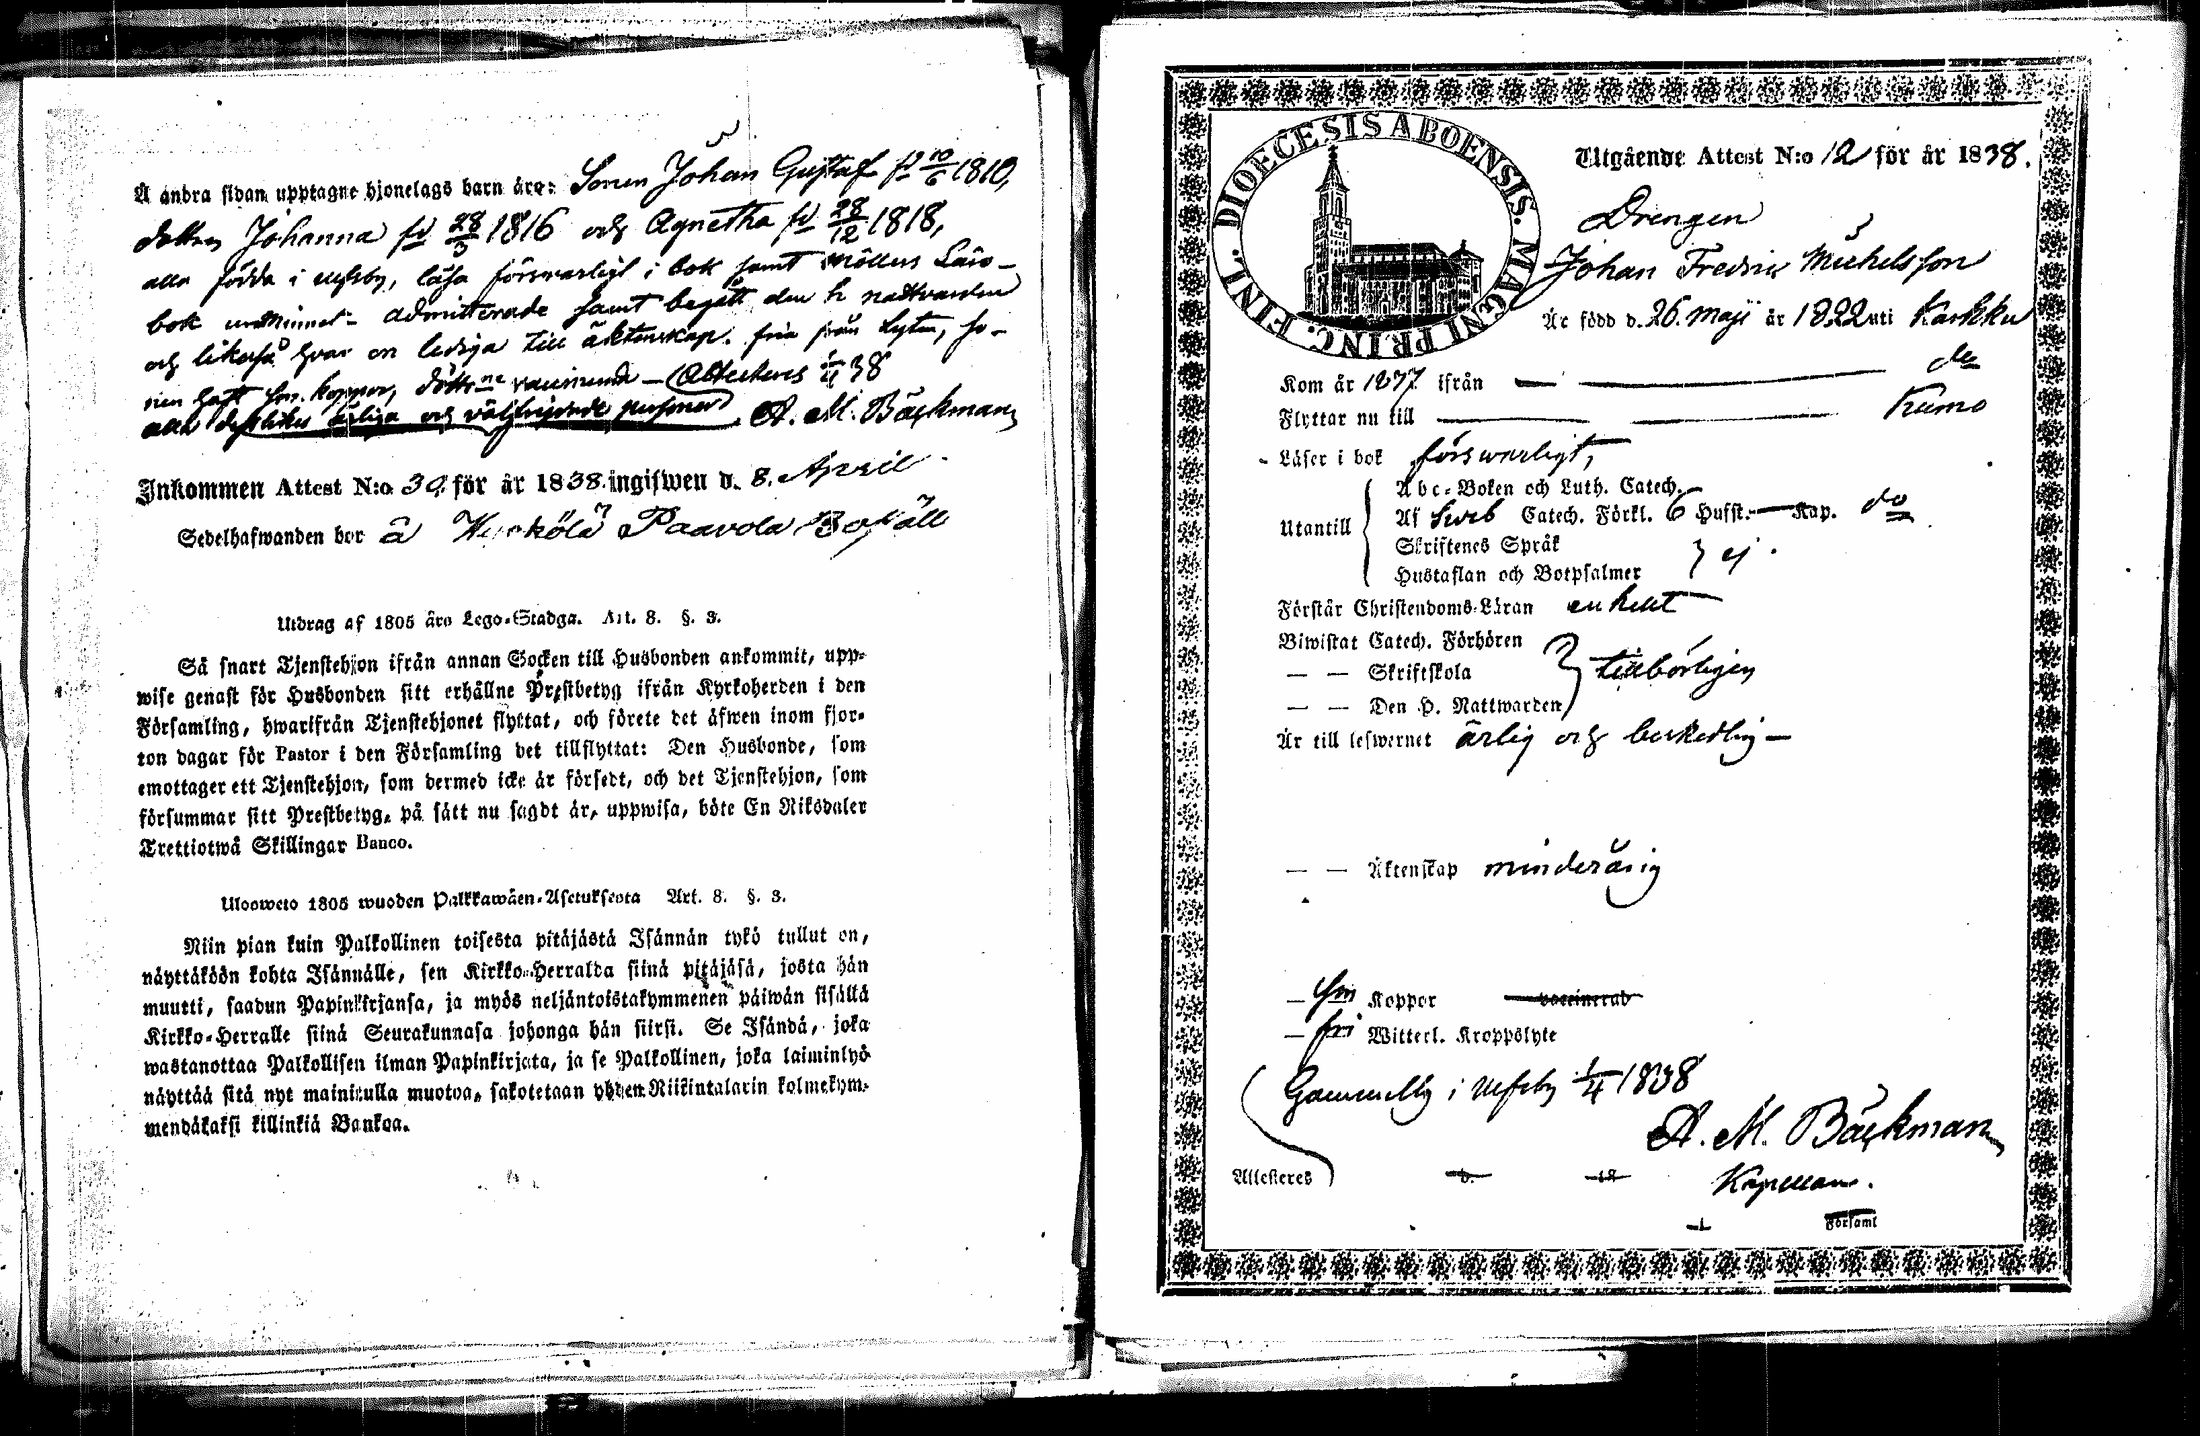 Å andra sidan upptagne hjonelags barn äro: Sonen Johan Gustaf fd 10/6 1810,
dottren Johanna fd 28/3 1816 och Agnetha fd 28/12 1818,
alla födda i Ulfsby, läsa försvarligt i bok samt Möllers Läro-
bok admitterade samt begått den h nattvarden
och likaså hvar en lediga till äktenskap. fria från Lyten, so-
nen haft sm. koppor, döttrne vaccinerade – Attesteras 1/4 38
alla desslikes ärliga och välfrejdade personer. A. M. Bäckman
Inkommen Attest N:o 39. för år 1838. ingifwen d. 8. April
Sedelhafwanden bor å Paavola Boställ
Utdrag af 1805 års Lego-Stadga. Art. 8. §. 3.
Så snart Tjenstehjon ifrån annan Socken till Husbonden ankommit, upp-
wise genast för Husbonden sitt erhållne Prestbetyg ifrån Kyrkoherden i den
Församling, hwarifrån Tjenstehjonet flyttat, och förete det äfwen inom fjor-
ton dagar för Pastor i den Församling det tillflyttat: Den Husbonde, som
emottager ett Tjenstehjon, som dermed icke är försedt, och det Tjenstehjon, som
försummar sitt Prestbetyg, på sätt nu sagdt är, uppwisa, böte En Riksdaler
Trettiotwå Skillingar Banco.
Ulosweto 1805 wuoden Palkkawäen-Asetuksesta Art. 8. §. 3.
Niin pian kuin Palkollinen toisesta pitäjästä Isännän tykö tullut on,
näyttäköön kohta Isännälle, sen Kirkko-Herralda siinä pitäjäsä, josta hän
muutti, saadun Papinkirjansa, ja myös neljäntoistakymmenen päiwän sisällä
Kirkko-Herralle siinä Seurakunnasa johonga hän siirsi. Se Isändä, joka
wastanottaa Palkollisen ilman Papinkirjata, ja se Palkollinen, joka laiminlyö
näyttää sitä nyt mainitulla muotoa, sakotetaan yhden Riikintalarin kolmekym-
mendäkaksi killinkiä Bankoa.
DIOECESIS ABOENSIS. MAGNI PRINC. FINL.
Utgående Attest N:o 12 för år 1838.
Drengen
Johan Fredric Michelsson
Är född d. 26. Maji år 1822 uti Karkku
Kom år 1837 ifrån do
Flyttar nu till Kumo
Läser i bok försvarligt,
Utantill
Abc-Boken och Luth. Catech.
Af Sveb Catech. Förkl. 6 Hufst.- Kap. do
Skriftenes Språk
Hustaflan och Botpsalmer } ej.
Förstår Christendoms-Läran enkelt
Biwistat Catech. Förhören
— — Skriftskola } tillbörligen
— — Den H. Nattwarden
Är till lefwernet ärlig och beskedlig –
— — Äktenskap minderårig
— Sm Koppor vaccinerad
— fri Witterl. Kroppslyte
Gammelby i Ulfsby 1/4 1838
A. M. Bäckman
Attesteres d. 18 Kapellan.
i Församl